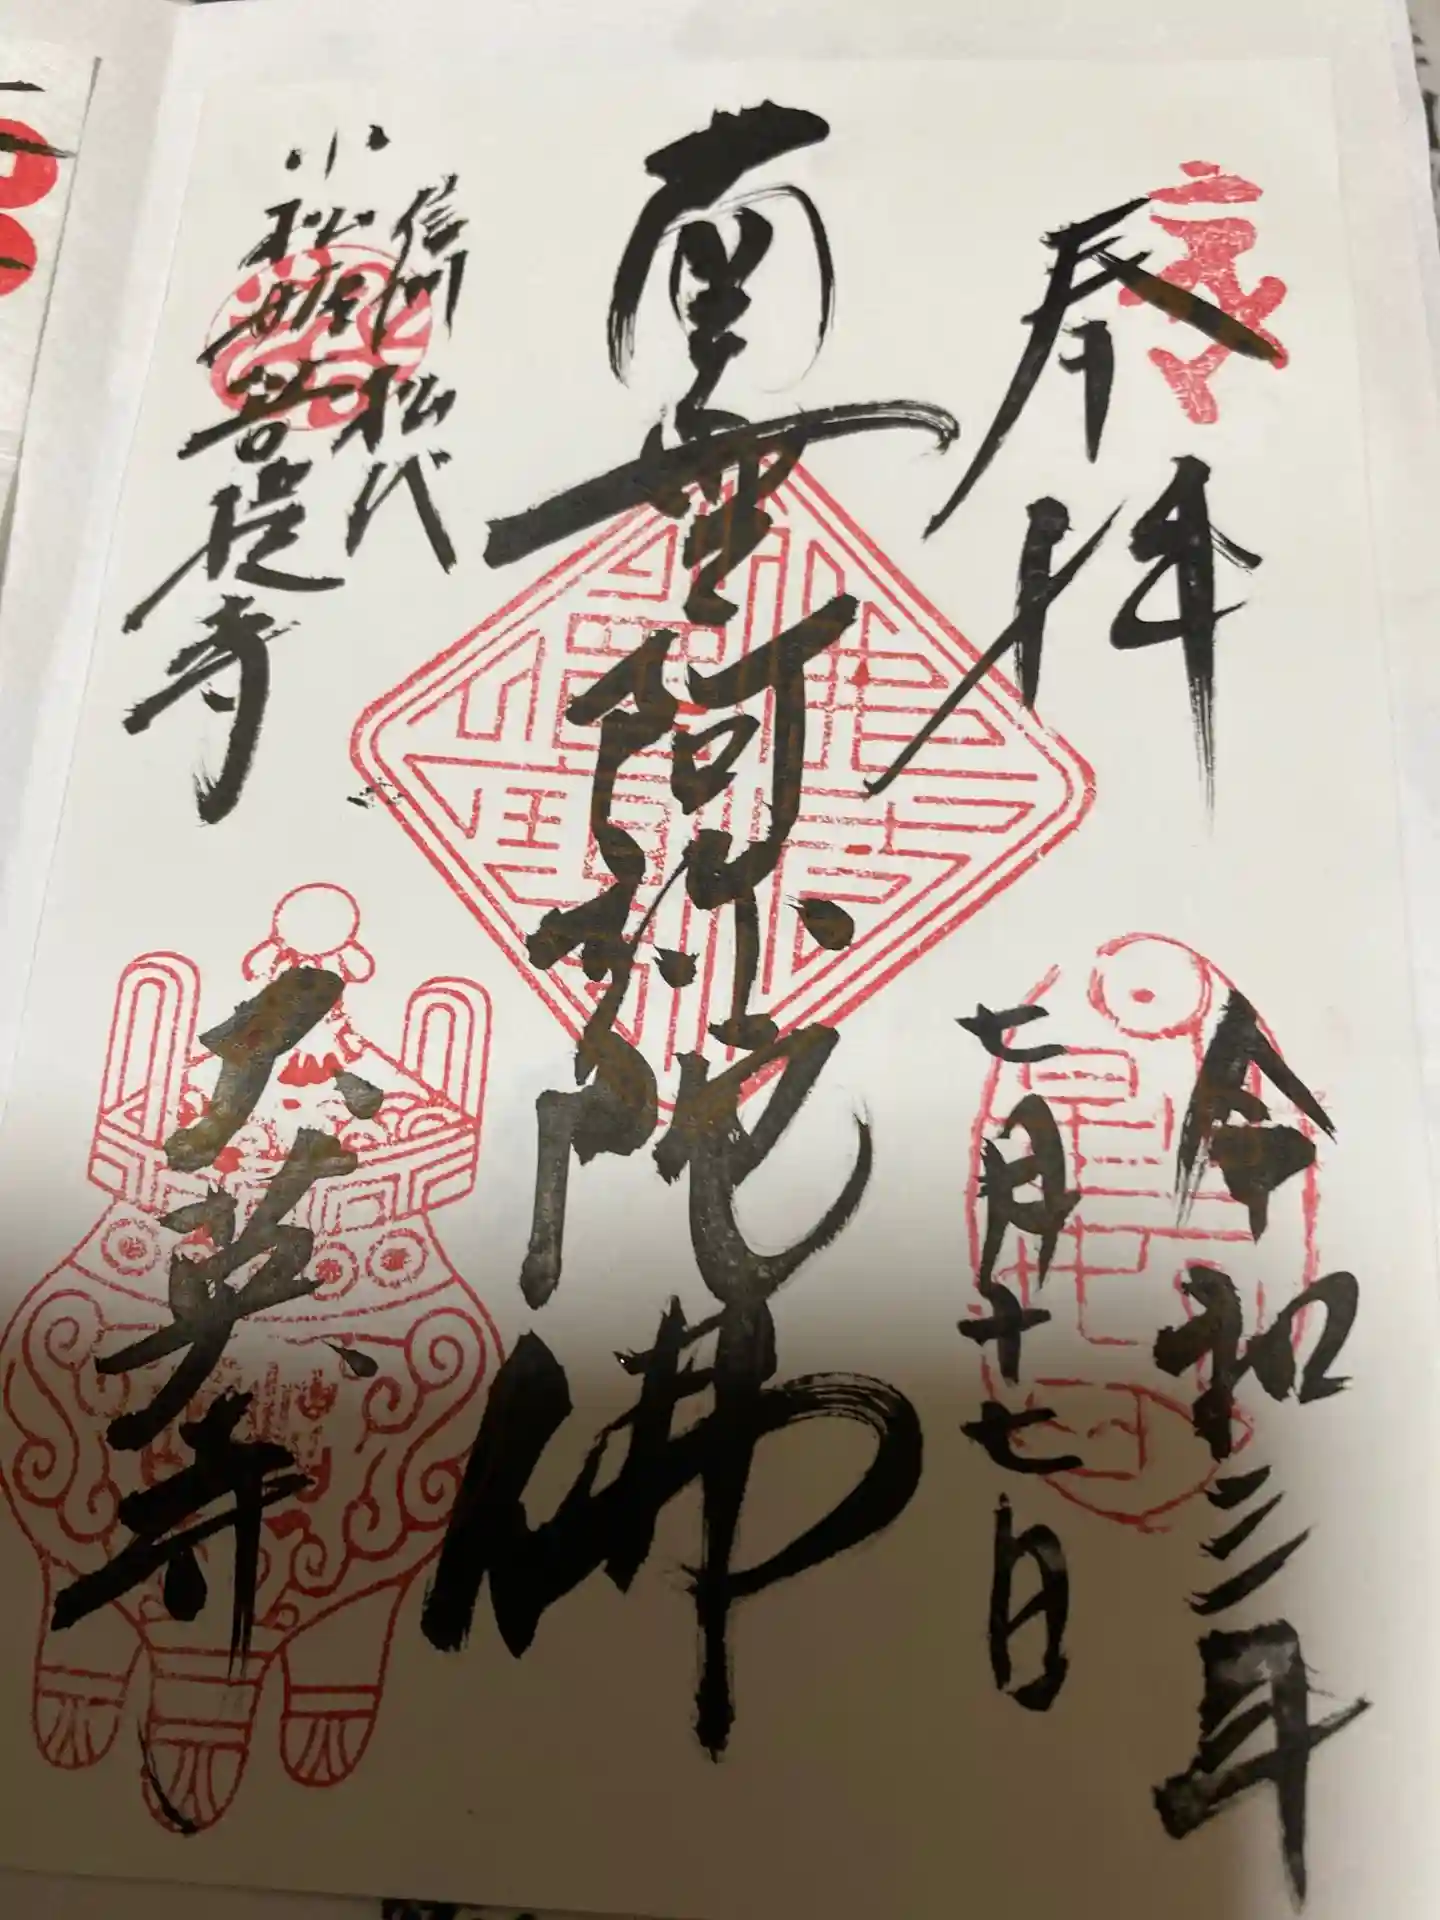 奉拝
令和三年
七月十七日
南無阿弥陀佛
信州松代
小松姫菩提寺
大英寺